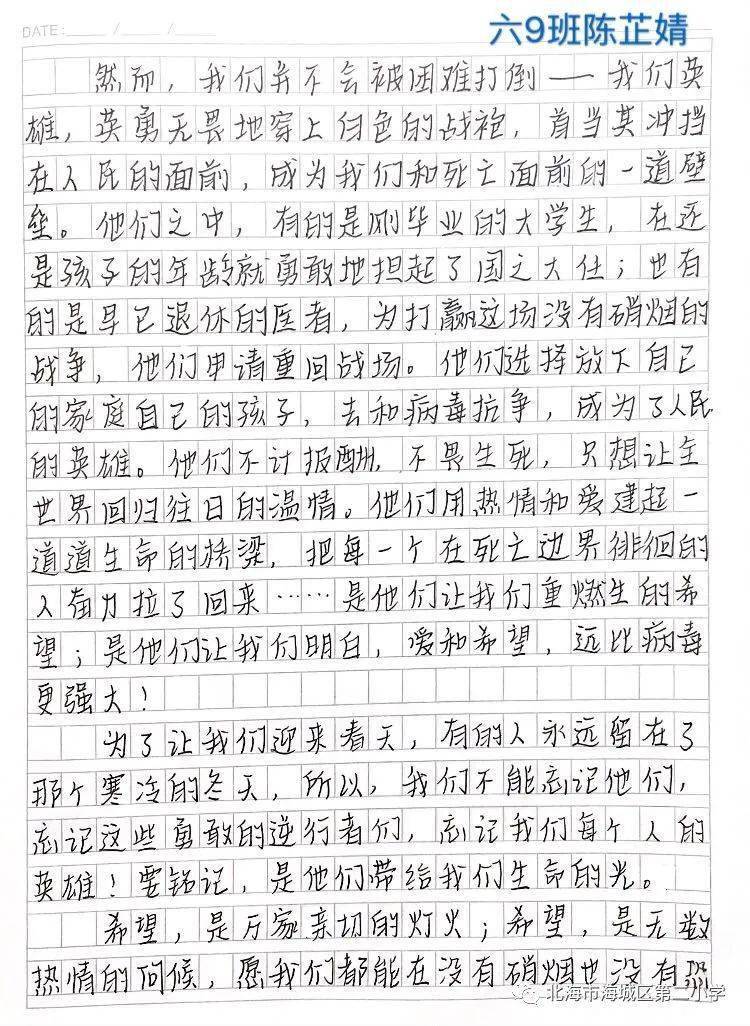 六9班陈芷婧
DATE: / /
然而，我们并不会被困难打倒——我们英
雄，英勇无畏地穿上白色的战袍，首当其冲挡
在人民的面前，成为我们和死亡面前的一道壁
垒。他们之中，有的是刚毕业的大学生，在还
是孩子的年龄就勇敢地担起了国之大任；也有
的是早已退休的医者，为打赢这场没有硝烟的
战争，他们申请重回战场。他们选择放下自己
的家庭自己的孩子，去和病毒抗争，成为了人民
的英雄。他们不计报酬，不畏生死，只想让全
世界回归往日的温情。他们用热情和爱建起一
道道生命的桥梁，把每一个在死亡边界徘徊的
人奋力拉了回来……是他们让我们重燃生的希
望；是他们让我们明白，爱和希望，远比病毒
更强大！
为了让我们迎来春天，有的人永远留在了
那个寒冷的冬天，所以，我们不能忘记他们，
忘记这些勇敢的逆行者们，忘记我们每个人的
英雄！要铭记，是他们带给我们生命的光。
希望，是万家亲切的灯火；希望，是无数
热情的问候，愿我们都能在没有硝烟也没有恐
北海市海城区第二小学